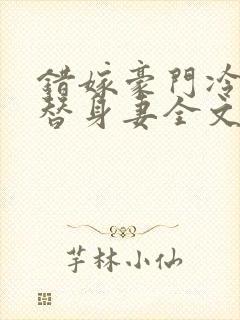 錯嫁豪門冷
替身妻全文
芊林小仙